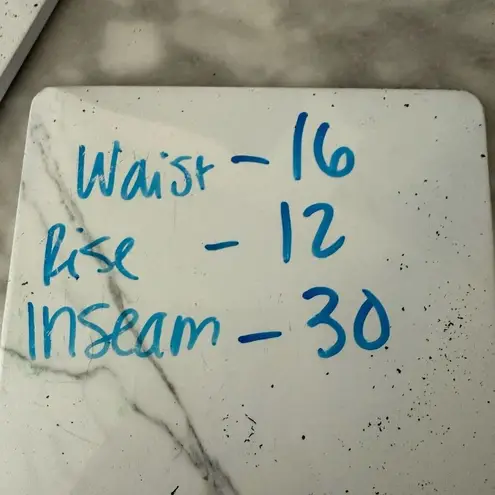 Waist - 16
Rise - 12
Inseam - 30